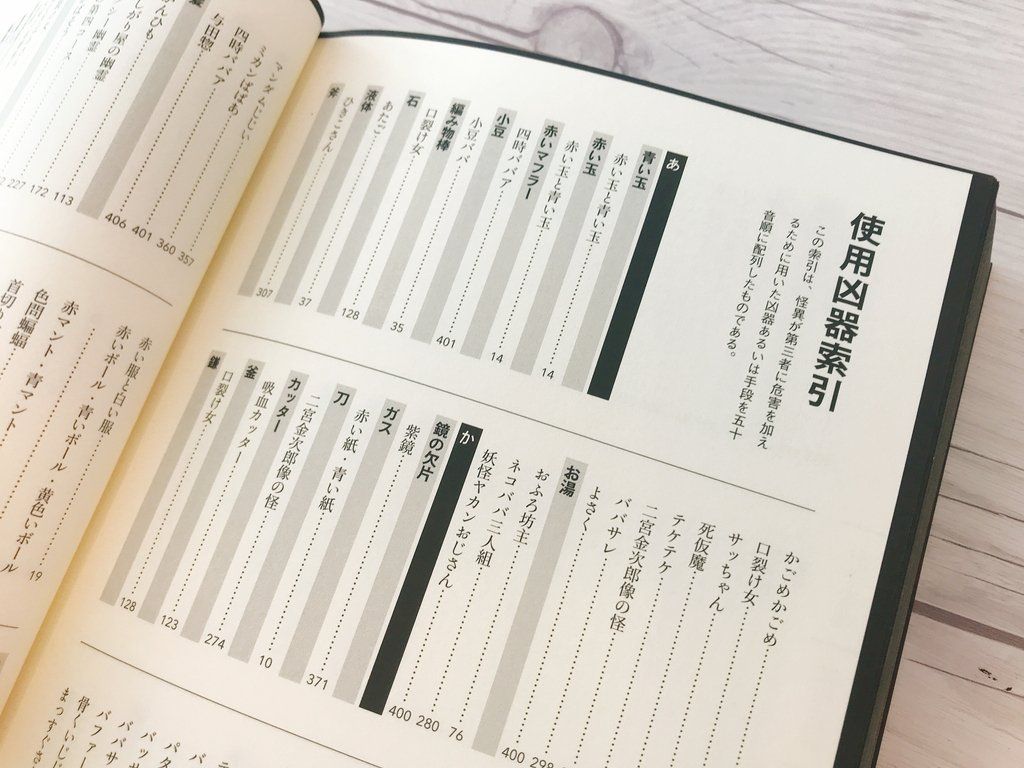 使用凶器索引
この索引は、怪異が第三者に危害を加え
るために用いた凶器あるいは手段を五十
音順に配列したものである。
あ
青い玉
赤い玉と青い玉 14
赤い玉
赤い玉と青い玉 14
赤いマフラー
四時ババア 401
小豆
小豆ババ 35
編み物棒
口裂け女 128
石
あたご 37
液体
ひきこさん 307
斧
かごめかごめ
口裂け女
サッちゃん
死仮魔
テケテケ
二宮金次郎像の怪
ババサレ
よさく 400
お湯
おふろ坊主 76
ネコババ三人組 280
妖怪ヤカンおじさん 400
か
鏡の欠片
紫鏡 371
ガス
赤い紙・青い紙 10
刀
二宮金次郎像の怪 274
カッター
吸血カッター 123
釜
口裂け女 128
鎌
マンダムじじい 357
ミカンばばあ 360
四時ババア 401
与田惣 406
しがり屋の幽霊
赤い服と白い服
赤いボール・青いボール・黄色いボール 19
赤マント・青マント
色問蝙蝠
首切り
113
172
227
ババサ
バファー
骨くいじじ
まっすぐさ